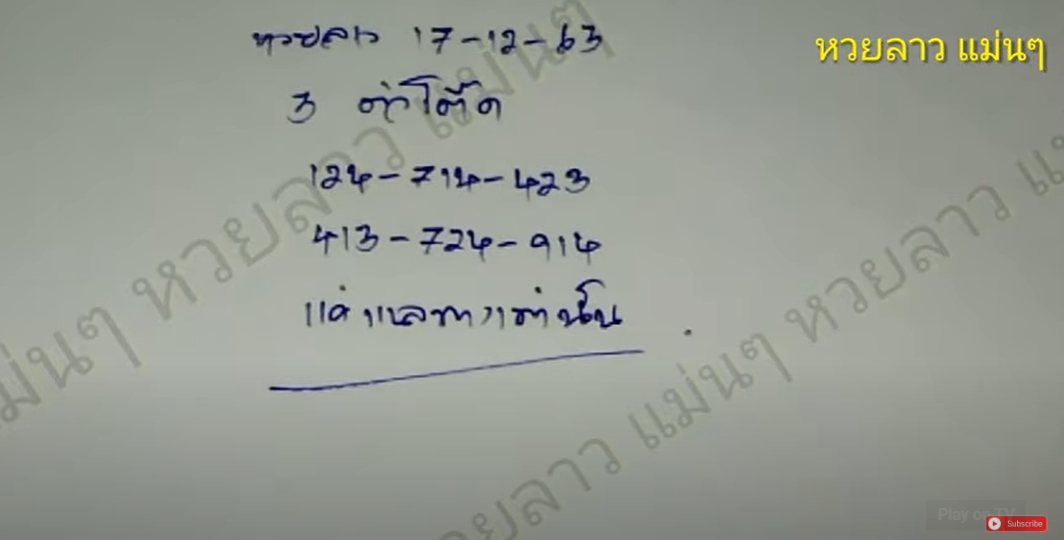 หวยลาว 17-12-63
หวยลาว แม่นๆ
3 ตัวโต๊ด
124-714-423
413-724-914
แค่แนวทางเท่านั้น
หวยลาว แม่นๆ
หวยลาว แม่นๆ
Play on TV
Subscribe